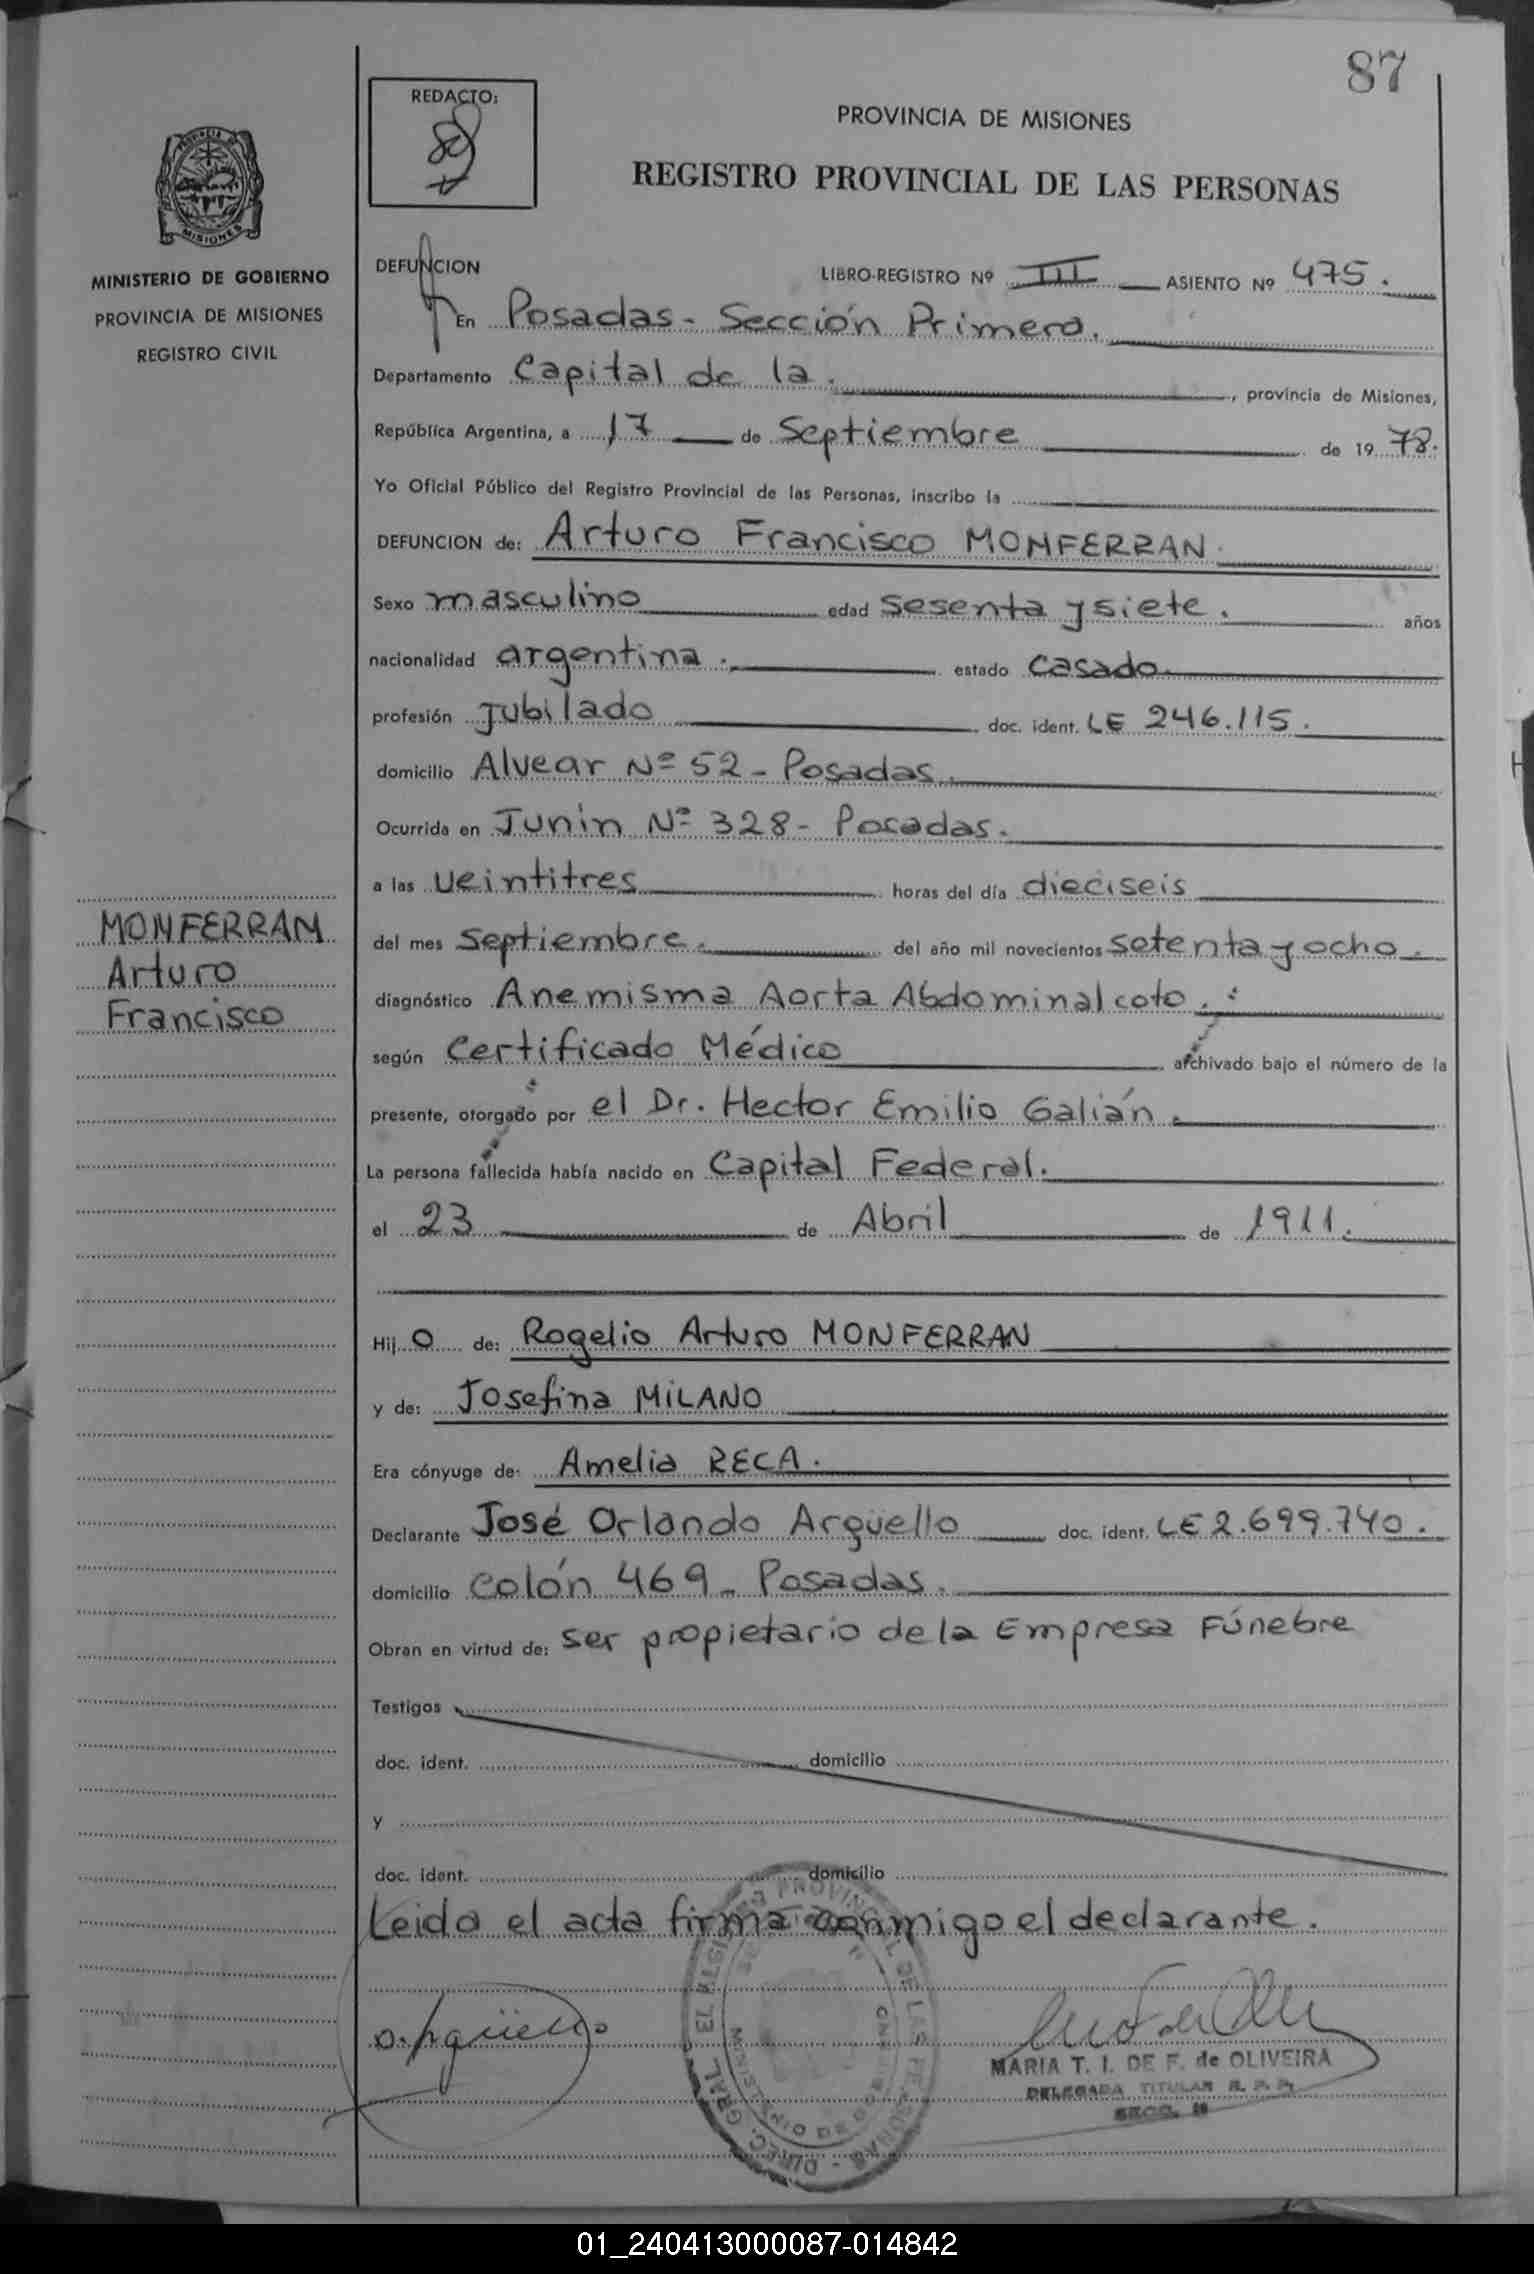 87
REDACTO:
PROVINCIA DE MISIONES
REGISTRO PROVINCIAL DE LAS PERSONAS
MISIONES
MINISTERIO DE GOBIERNO
PROVINCIA DE MISIONES
REGISTRO CIVIL
MONFERRAN
Arturo
Francisco
DEFUNCION LIBRO-REGISTRO Nº III ASIENTO Nº 475.
En Posadas - Sección Primera.
Departamento Capital de la. , provincia de Misiones,
República Argentina, a 17 de Septiembre de 1978.
Yo Oficial Público del Registro Provincial de las Personas, inscribo la
DEFUNCION de: Arturo Francisco MONFERRAN.
Sexo masculino edad sesenta y siete. años
nacionalidad argentina. estado casado.
profesión jubilado doc. ident. LE 246.115.
domicilio Alvear Nº 52 - Posadas.
Ocurrida en Junin Nº 328 - Posadas.
a las veintitres horas del día dieciseis
del mes septiembre. del año mil novecientos setenta y ocho.
diagnóstico Anemisma Aorta Abdominal coto.
según Certificado Médico archivado bajo el número de la
presente, otorgado por el Dr. Hector Emilio Galián.
La persona fallecida había nacido en Capital Federal.
el 23 de Abril de 1911.
Hij o de: Rogelio Arturo MONFERRAN
y de: Josefina MILANO
Era cónyuge de: Amelia RECA.
Declarante José Orlando Argüello doc. ident. LE 2.699.740.
domicilio colón 469 - Posadas.
Obran en virtud de: ser propietario de la Empresa Fúnebre
Testigos
doc. ident. domicilio
y
doc. ident. domicilio
Leida el acta firma conmigo el declarante.
O. Argüello
MARIA T. I. DE F. de OLIVEIRA
DELEGADA TITULAR R. P. P.
01_240413000087-014842